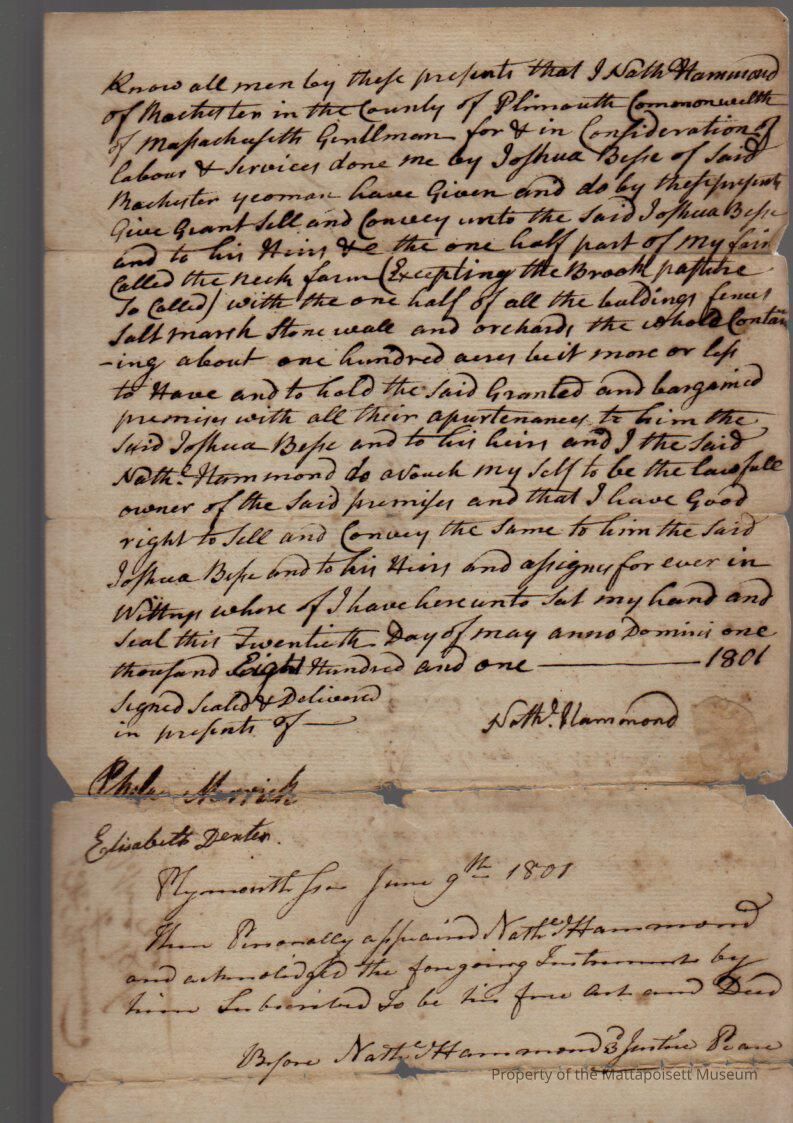 Know all men by these presents that I Nath.l Hammond
of Rochester in the County of Plimouth Commonwelth
of Massachusetts Gentlman for & in Consideration of
labour & services done me by Joshua Besse of Said
Rochester yeoman have Given and do by these presents
Give Grant Sell and Convey unto the said Joshua Besse
and to his Heirs &c the one half part of my farm
Called the neck farm (Excepting the Brook pasture
So Called) with the one half of all the buldings fences
Salt marsh Stone wall and orchards the whold Contain
-ing about one hundred acres be it more or less
to Have and to hold the said Granted and bargained
premises with all their apurtenances to him the
said Joshua Besse and to his heirs and I the said
Nath.l Hammond do avouch my self to be the lawfull
owner of the said premises and that I have Good
right to Sell and Convey the same to him the said
Joshua Besse and to his Heirs and assigns for ever in
Wittnes where of I have hereunto Sat my hand and
Seal this Twentieth Day of may anno Domini one
thousand Eight Hundred and one 1801
Signed Sealed & Delivered
in presents of
Nath.l Hammond
Elisabeth Dexter.
Plymouth Ss June 9th 1801
Then Personally appeared Nath.l Hammond
and acknolidged the foregoing Instrument by
him Subscribed to be his free Act and Deed
Before Nath.l Hammond 3d Justice Peace
Property of the Mattapoisett Museum